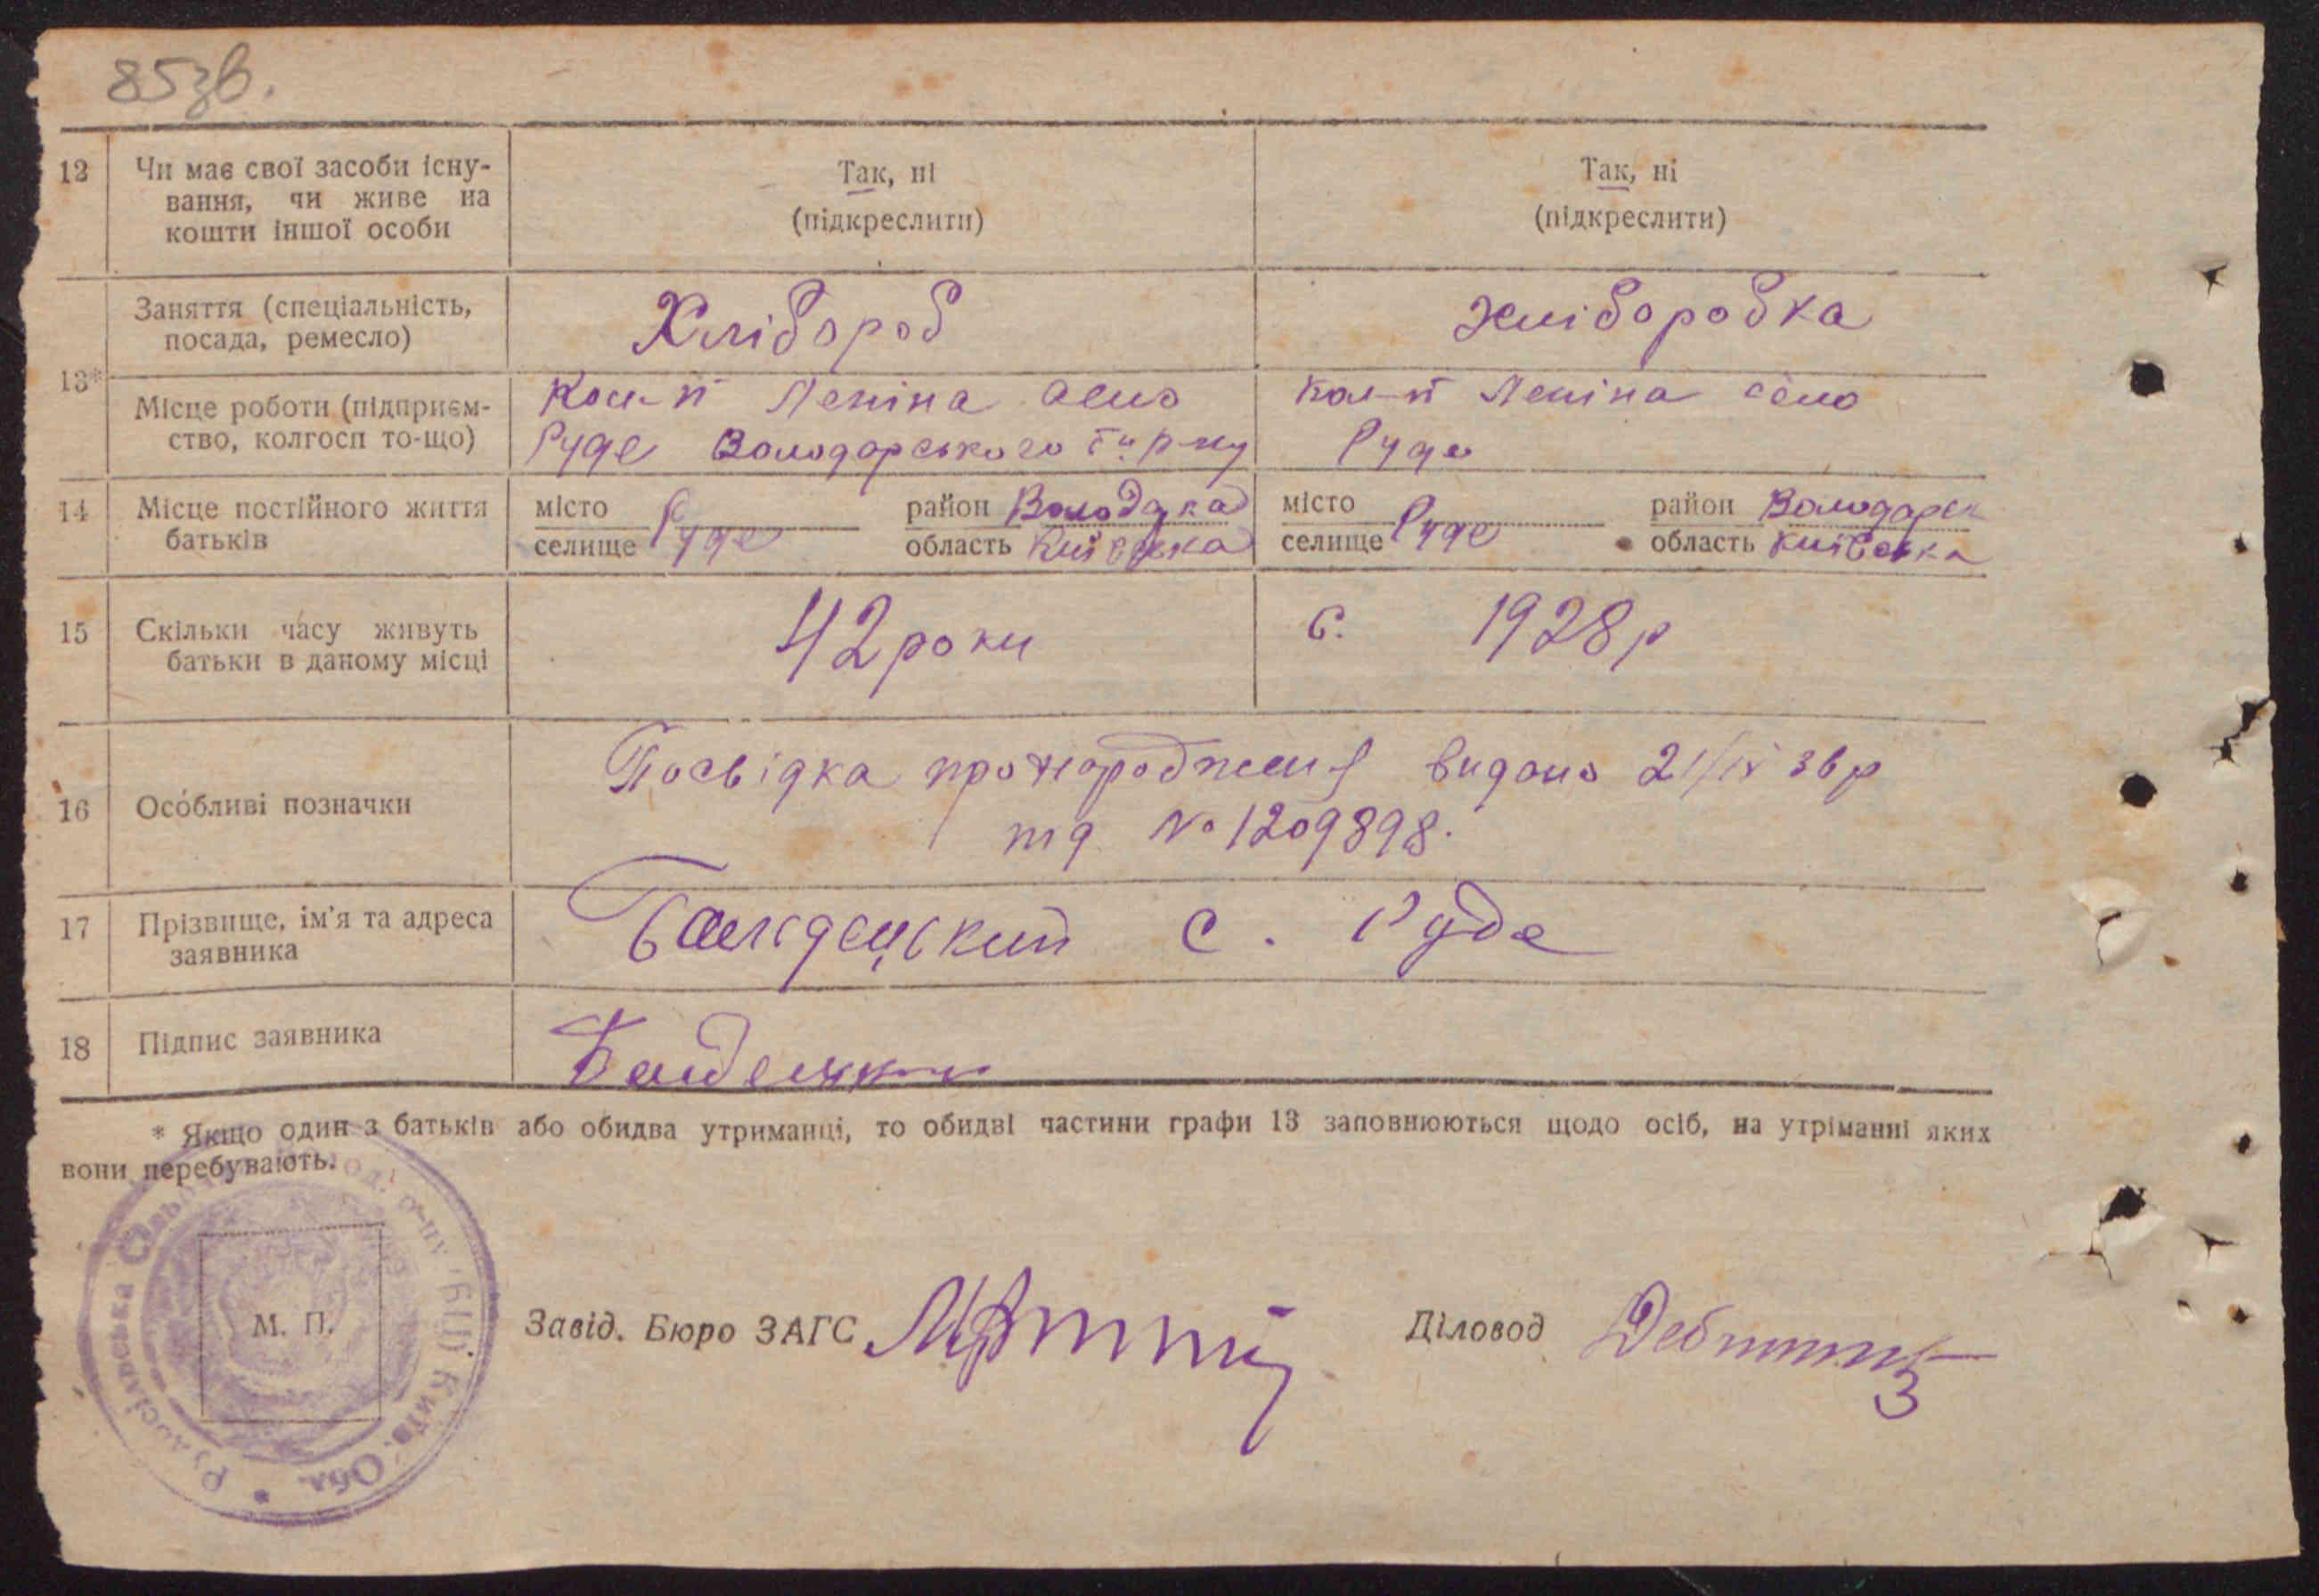 85зв.
12 Чи має свої засоби існу-
вання, чи живе на
кошти іншої особи
Так, ні
(підкреслити)
Так, ні
(підкреслити)
13*
Заняття (спеціальність,
посада, ремесло)
Хлібороб
хліборобка
Місце роботи (підприєм-
ство, колгосп то-що)
Кол-п Леніна село
Руде Володарського р-ну
Кол-п Леніна село
Руде
14 Місце постійного життя
батьків
місто
селище Руде
район
область Київська
місто
селище Руде
район Володарськ
область Київська
15 Скільки часу живуть
батьки в даному місці
42 роки
с. 1928 р
16 Особливі позначки
Посвідка про народження видано 21/IX 36 р
№ 1209898.
17 Прізвище, ім'я та адреса
заявника
с. Руде
18 Підпис заявника
* Якщо один з батьків або обидва утриманці, то обидві частини графи 13 заповнюються щодо осіб, на утріманні яких
вони перебувають.
М. П.
Завід. Бюро ЗАГС
Діловод